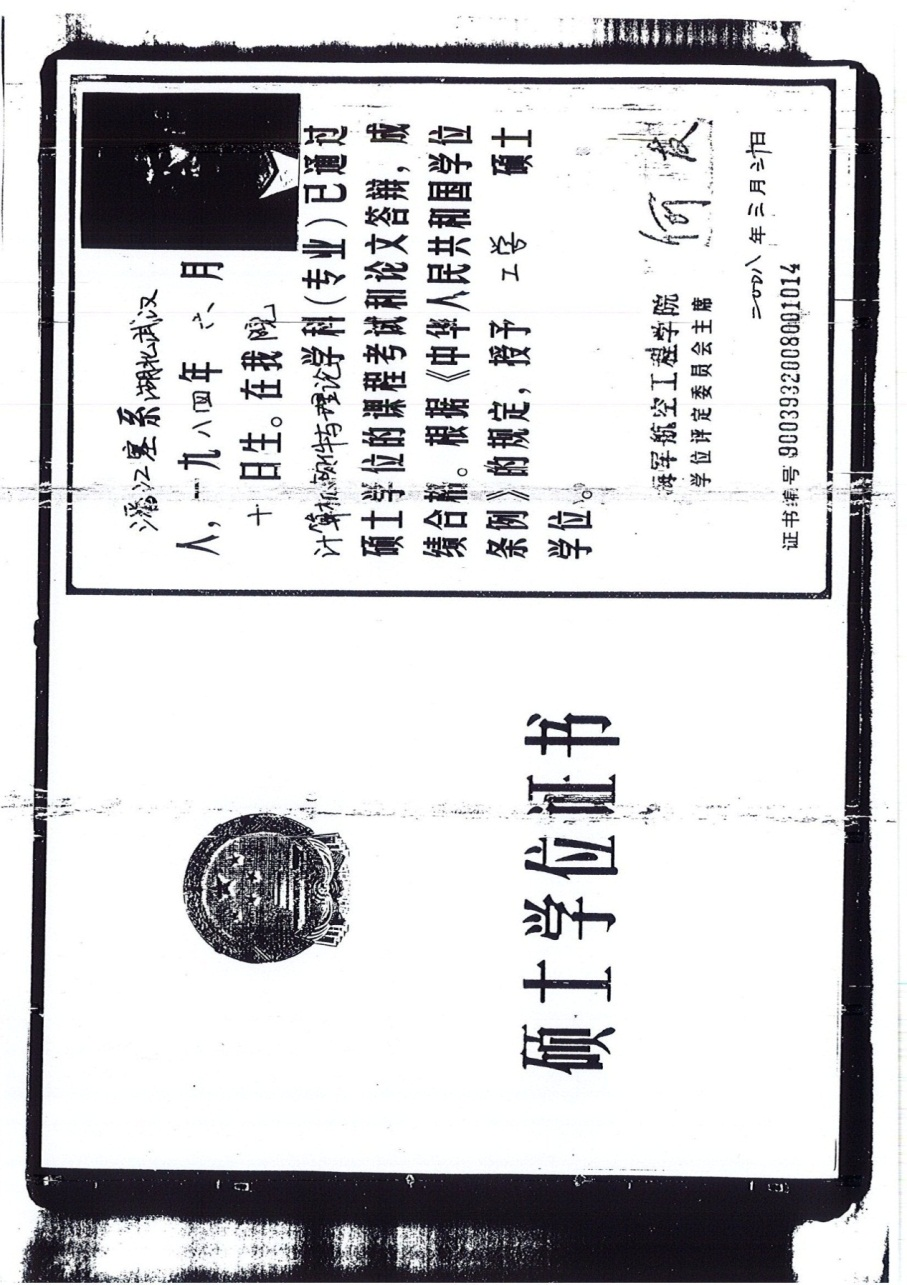 硕士学位证书
潘江塞系湖北武汉
人，一九八四年 六 月
十 日生。在我院
计算机软件与理论学科(专业)已通过
硕士学位的课程考试和论文答辩，成
绩合格。根据《中华人民共和国学位
条例》的规定，授予 工学 硕士
学位。
海军航空工程学院
学位评定委员会主席
二〇〇八 年 三 月 日
证书编号 9003932008001014